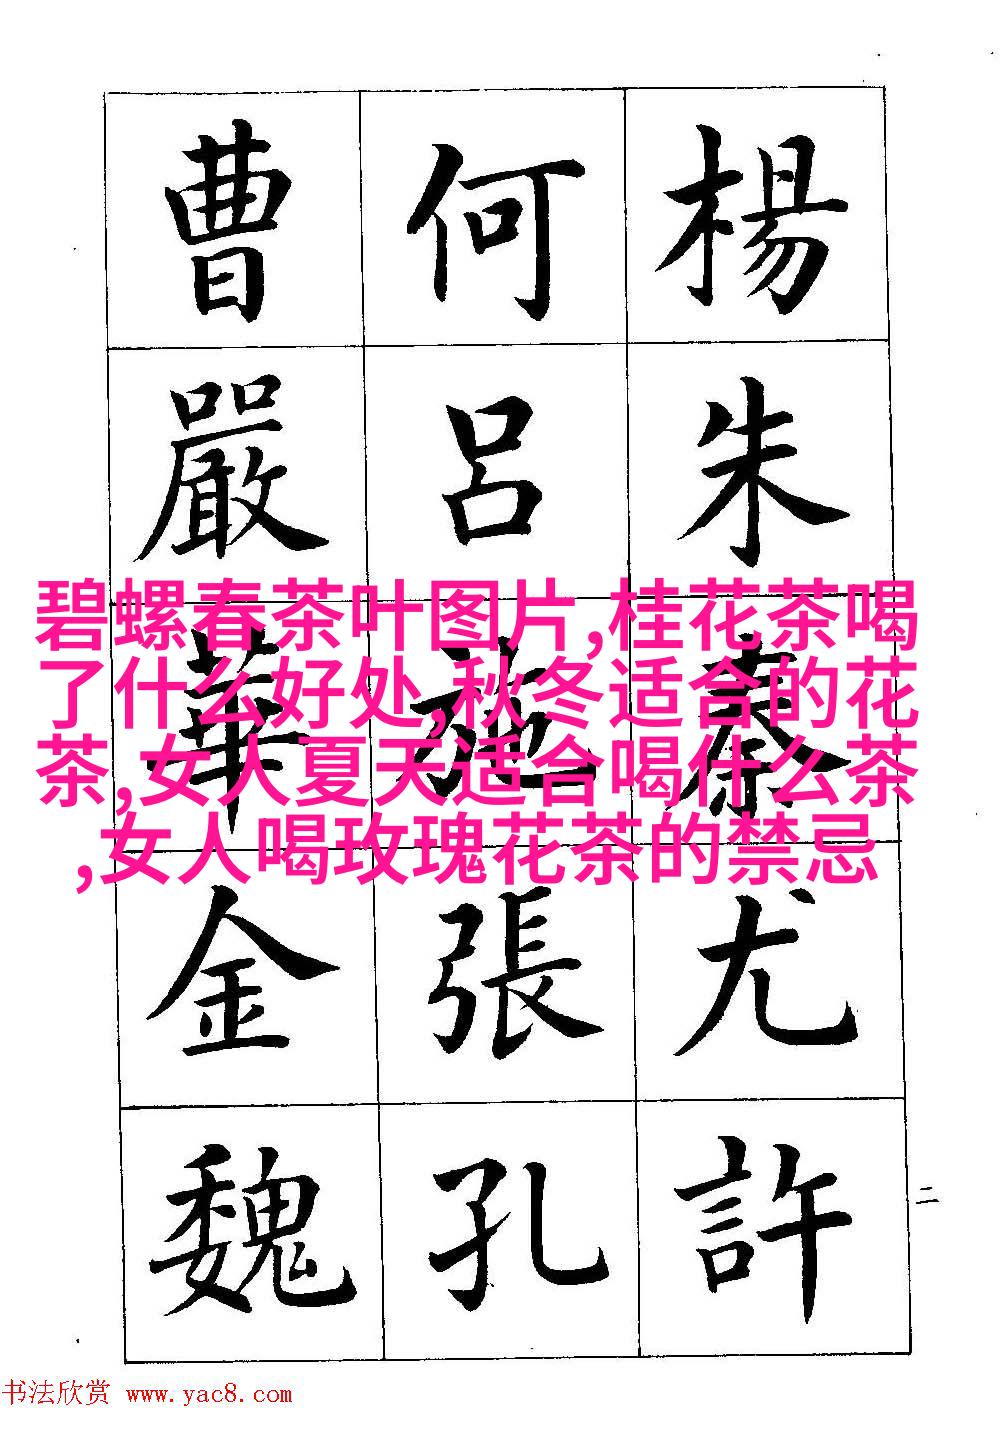 楊朱秦尤許
何呂施張孔
曹嚴華金魏
二
碧螺春茶叶图片,桂花茶喝
了什么好处,秋冬适合的花
茶,女人夏天适合喝什么茶
,女人喝玫瑰花茶的禁忌
书法欣赏 www.yac8.com